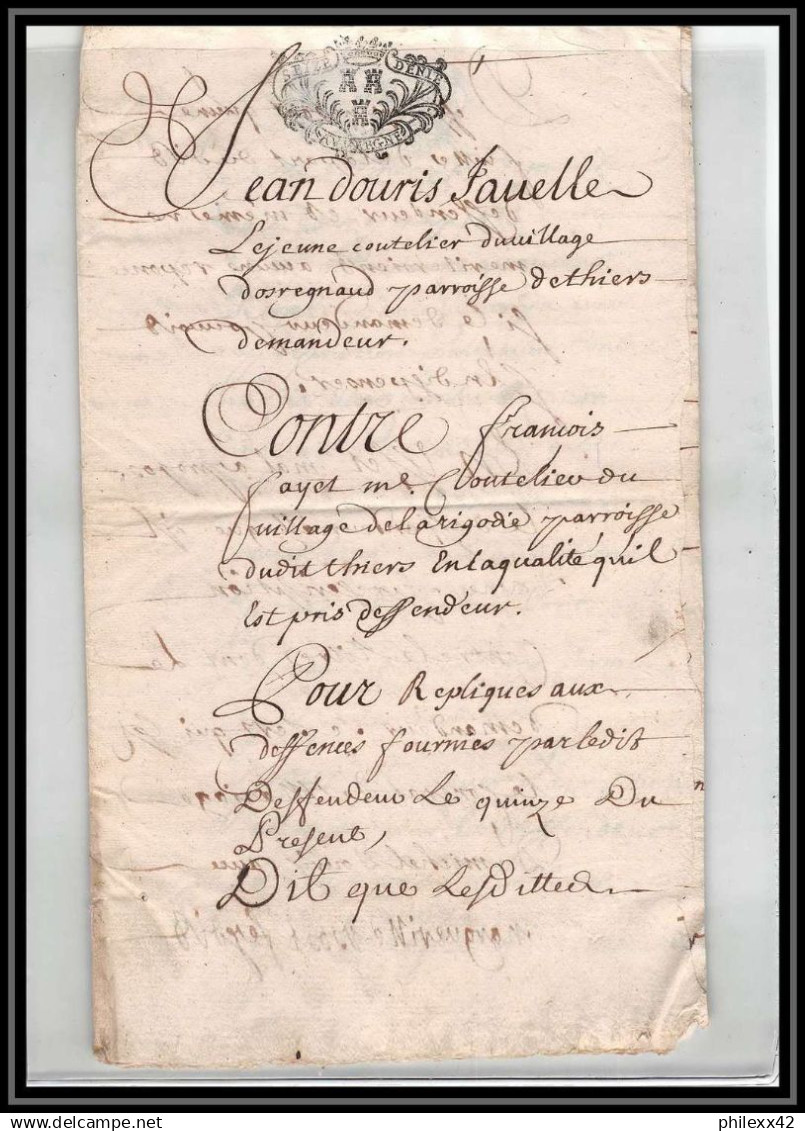 SEIZE DENIE
AUVERGNE
Jean douris Javelle
Le jeune coutelier du village
dosregnaud parroisse de thiers
demandeur.
Contre francois
Cayet me. Coutelier du
village de larigodie parroisse
dudit thiers En laqualité quil
Est pris deffendeur.
Pour Repliques aux
deffences fournies par ledit
Deffendeur Le quinze Du
Present,
Dit que Lesdittes
philexx42